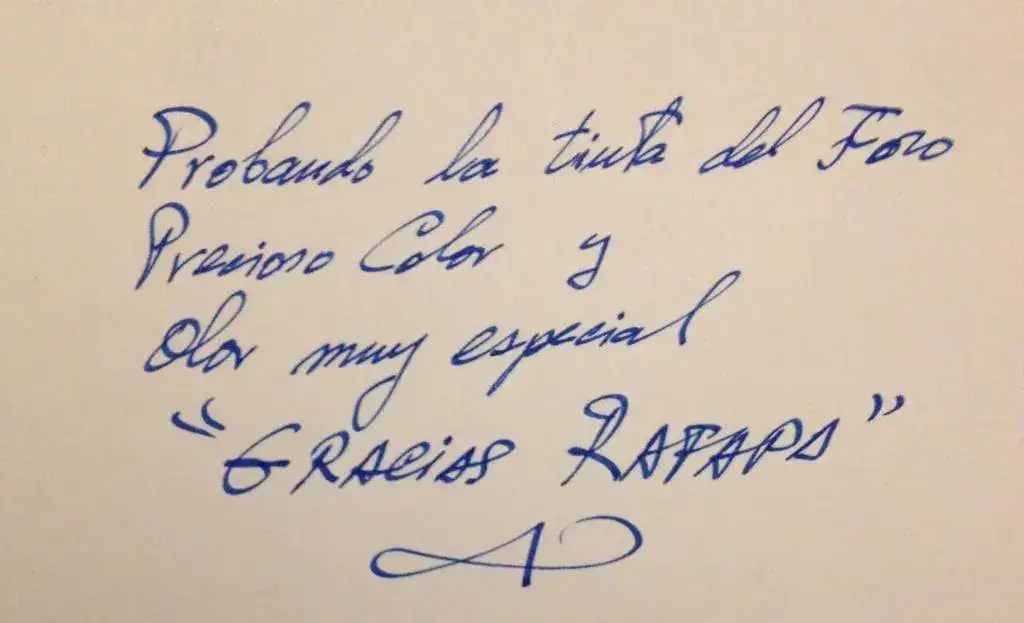 Probando la tinta del Foro
Precioso Color y
Olor muy especial
"GRACiAS RAFAPA"